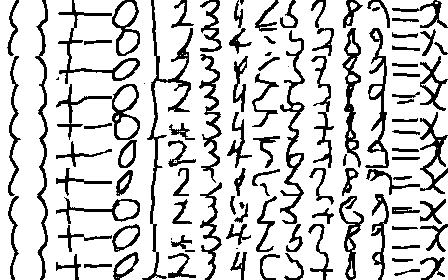 ( ) + - 0 1 2 3 4 5 6 7 8 9 = x
( ) + - 0 1 2 3 4 5 6 7 8 9 = x
( ) + - 0 1 2 3 4 5 6 7 8 9 = x
( ) + - 0 1 2 3 4 5 6 7 8 9 = x
( ) + - 0 1 2 3 4 5 6 7 8 9 = x
( ) + - 0 1 2 3 4 5 6 7 8 9 = x
( ) + - 0 1 2 3 4 5 6 7 8 9 = x
( ) + - 0 1 2 3 4 5 6 7 8 9 = x
( ) + - 0 1 2 3 4 5 6 7 8 9 = x
( ) + - 0 1 2 3 4 5 6 7 8 9 = x